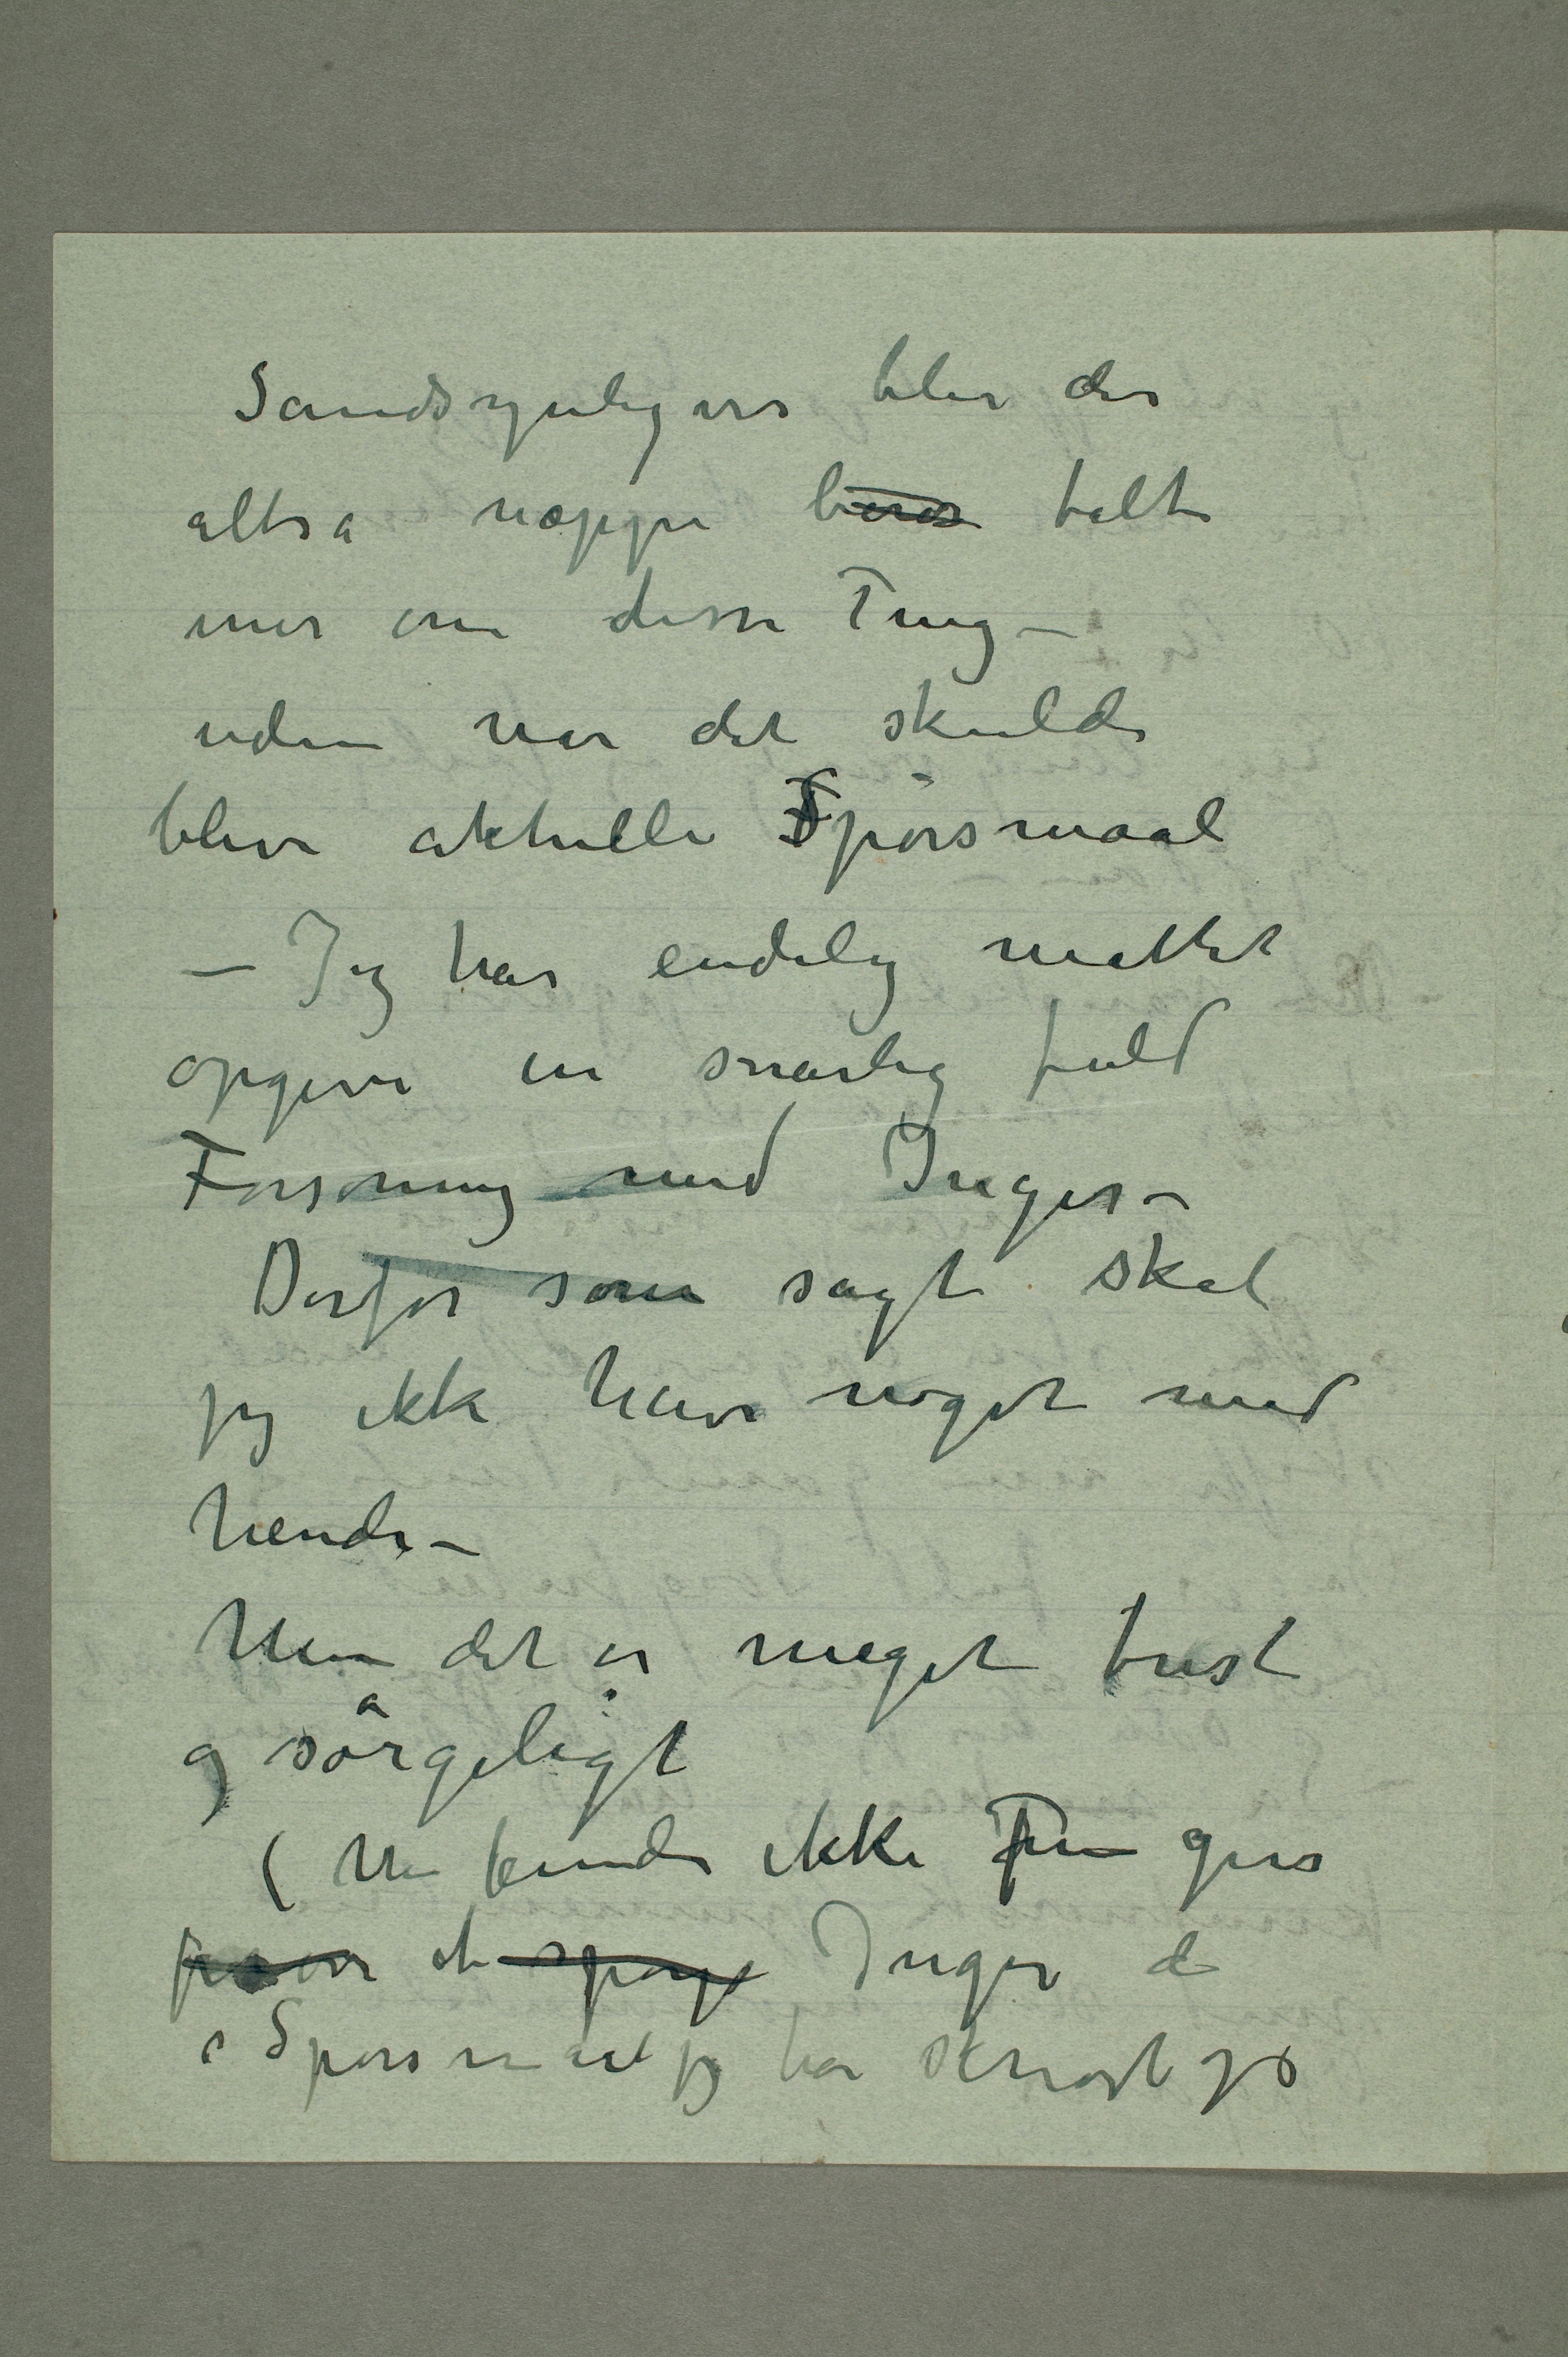 Sandsynligvis blir der
altså næppe talt
mer om disse Ting –
uden når det skulde
blive aktuelle Spörsmaal
– Jeg har endelig måttet
opgive en snarlig fuld
Forsoning med Inger –
Derfor som sagt skal
jeg ikke have noget med
hende –
Men det er meget trist
og sörgeligt
( Du kunde ikke gi
at Inger de
Spörsmål jeg har